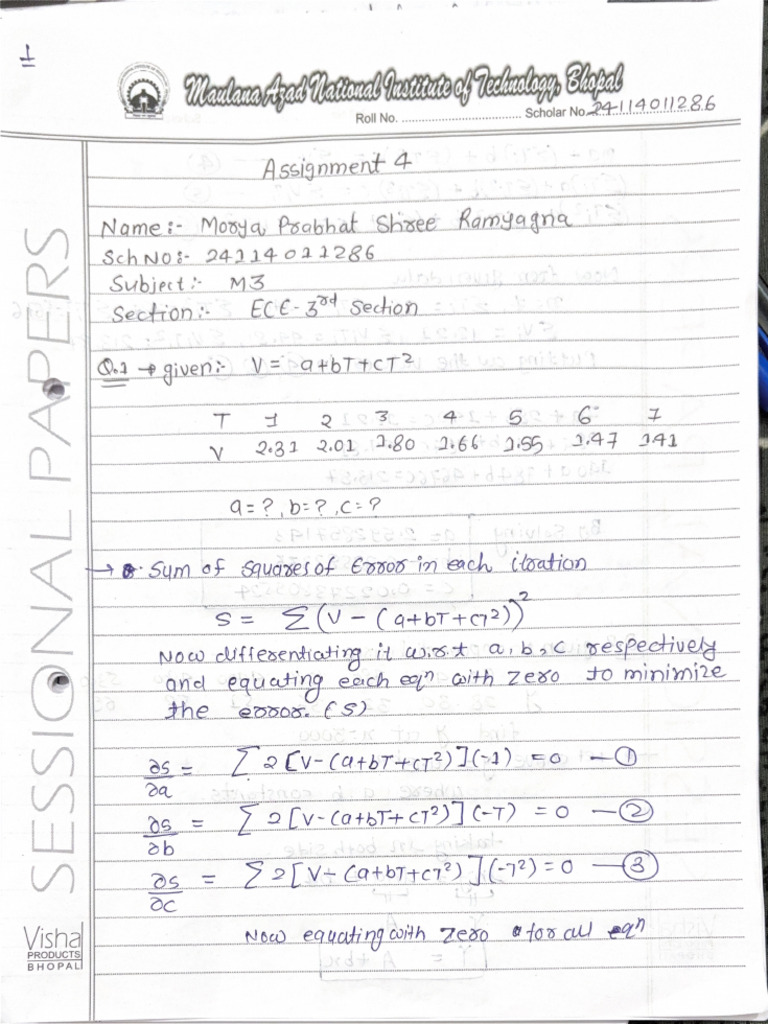 1
Maulana Azad National Institute of Technology, Bhopal
Roll No. .............................. Scholar No. 24114011286
Assignment 4
Name:- Morya Prabhat Shree Ramyagna
Sch No:- 24114011286
Subject:- M3
Section:- ECE-3rd Section
Q.1 → given:- V = a+bT+cT²
T 1 2 3 4 5 6 7
V 2.31 2.01 1.80 1.66 1.55 1.47 141
a=?, b=?, c=?
→ Sum of squares of Error in each itration
S = Σ(V - (a+bT+cT²))²
Now differentiating it w.r.t a, b, c respectively
and equating each eqⁿ with zero to minimize
the error. (S)
∂s/∂a = Σ 2[V-(a+bT+cT²)](-1) = 0 — ①
∂s/∂b = Σ 2[V-(a+bT+cT²)](-T) = 0 — ②
∂s/∂c = Σ 2[V-(a+bT+cT²)](-T²) = 0 — ③
Now equating with zero for all eqⁿ
SESSIONAL PAPERS
Visha
PRODUCTS
BHOPAL